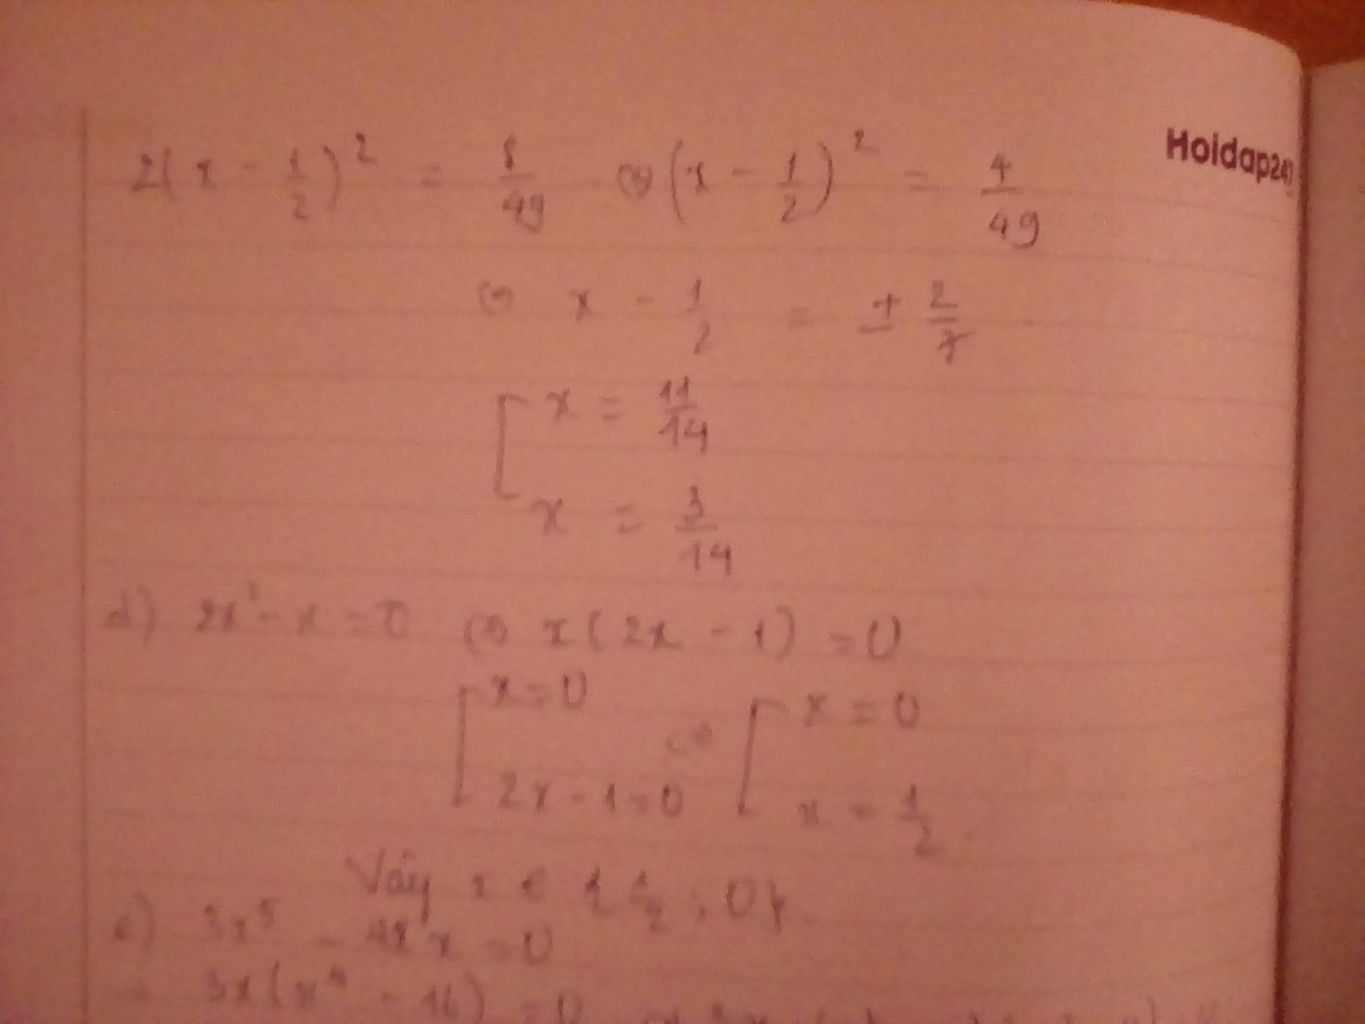 Hoidap247
2(x - 1/2)² = 8/49 <=> (x - 1/2)² = 4/49
<=> x - 1/2 = ± 2/7
[ x = 11/14
x = 3/14
d) 2x² - x = 0 <=> x(2x - 1) = 0
[ x = 0 <=> [ x = 0
2x - 1 = 0 x = 1/2
Vậy x ∈ { 1/2 ; 0 }.
e) 3x⁵ - x = 0
3x(x⁴ - 16) = 0